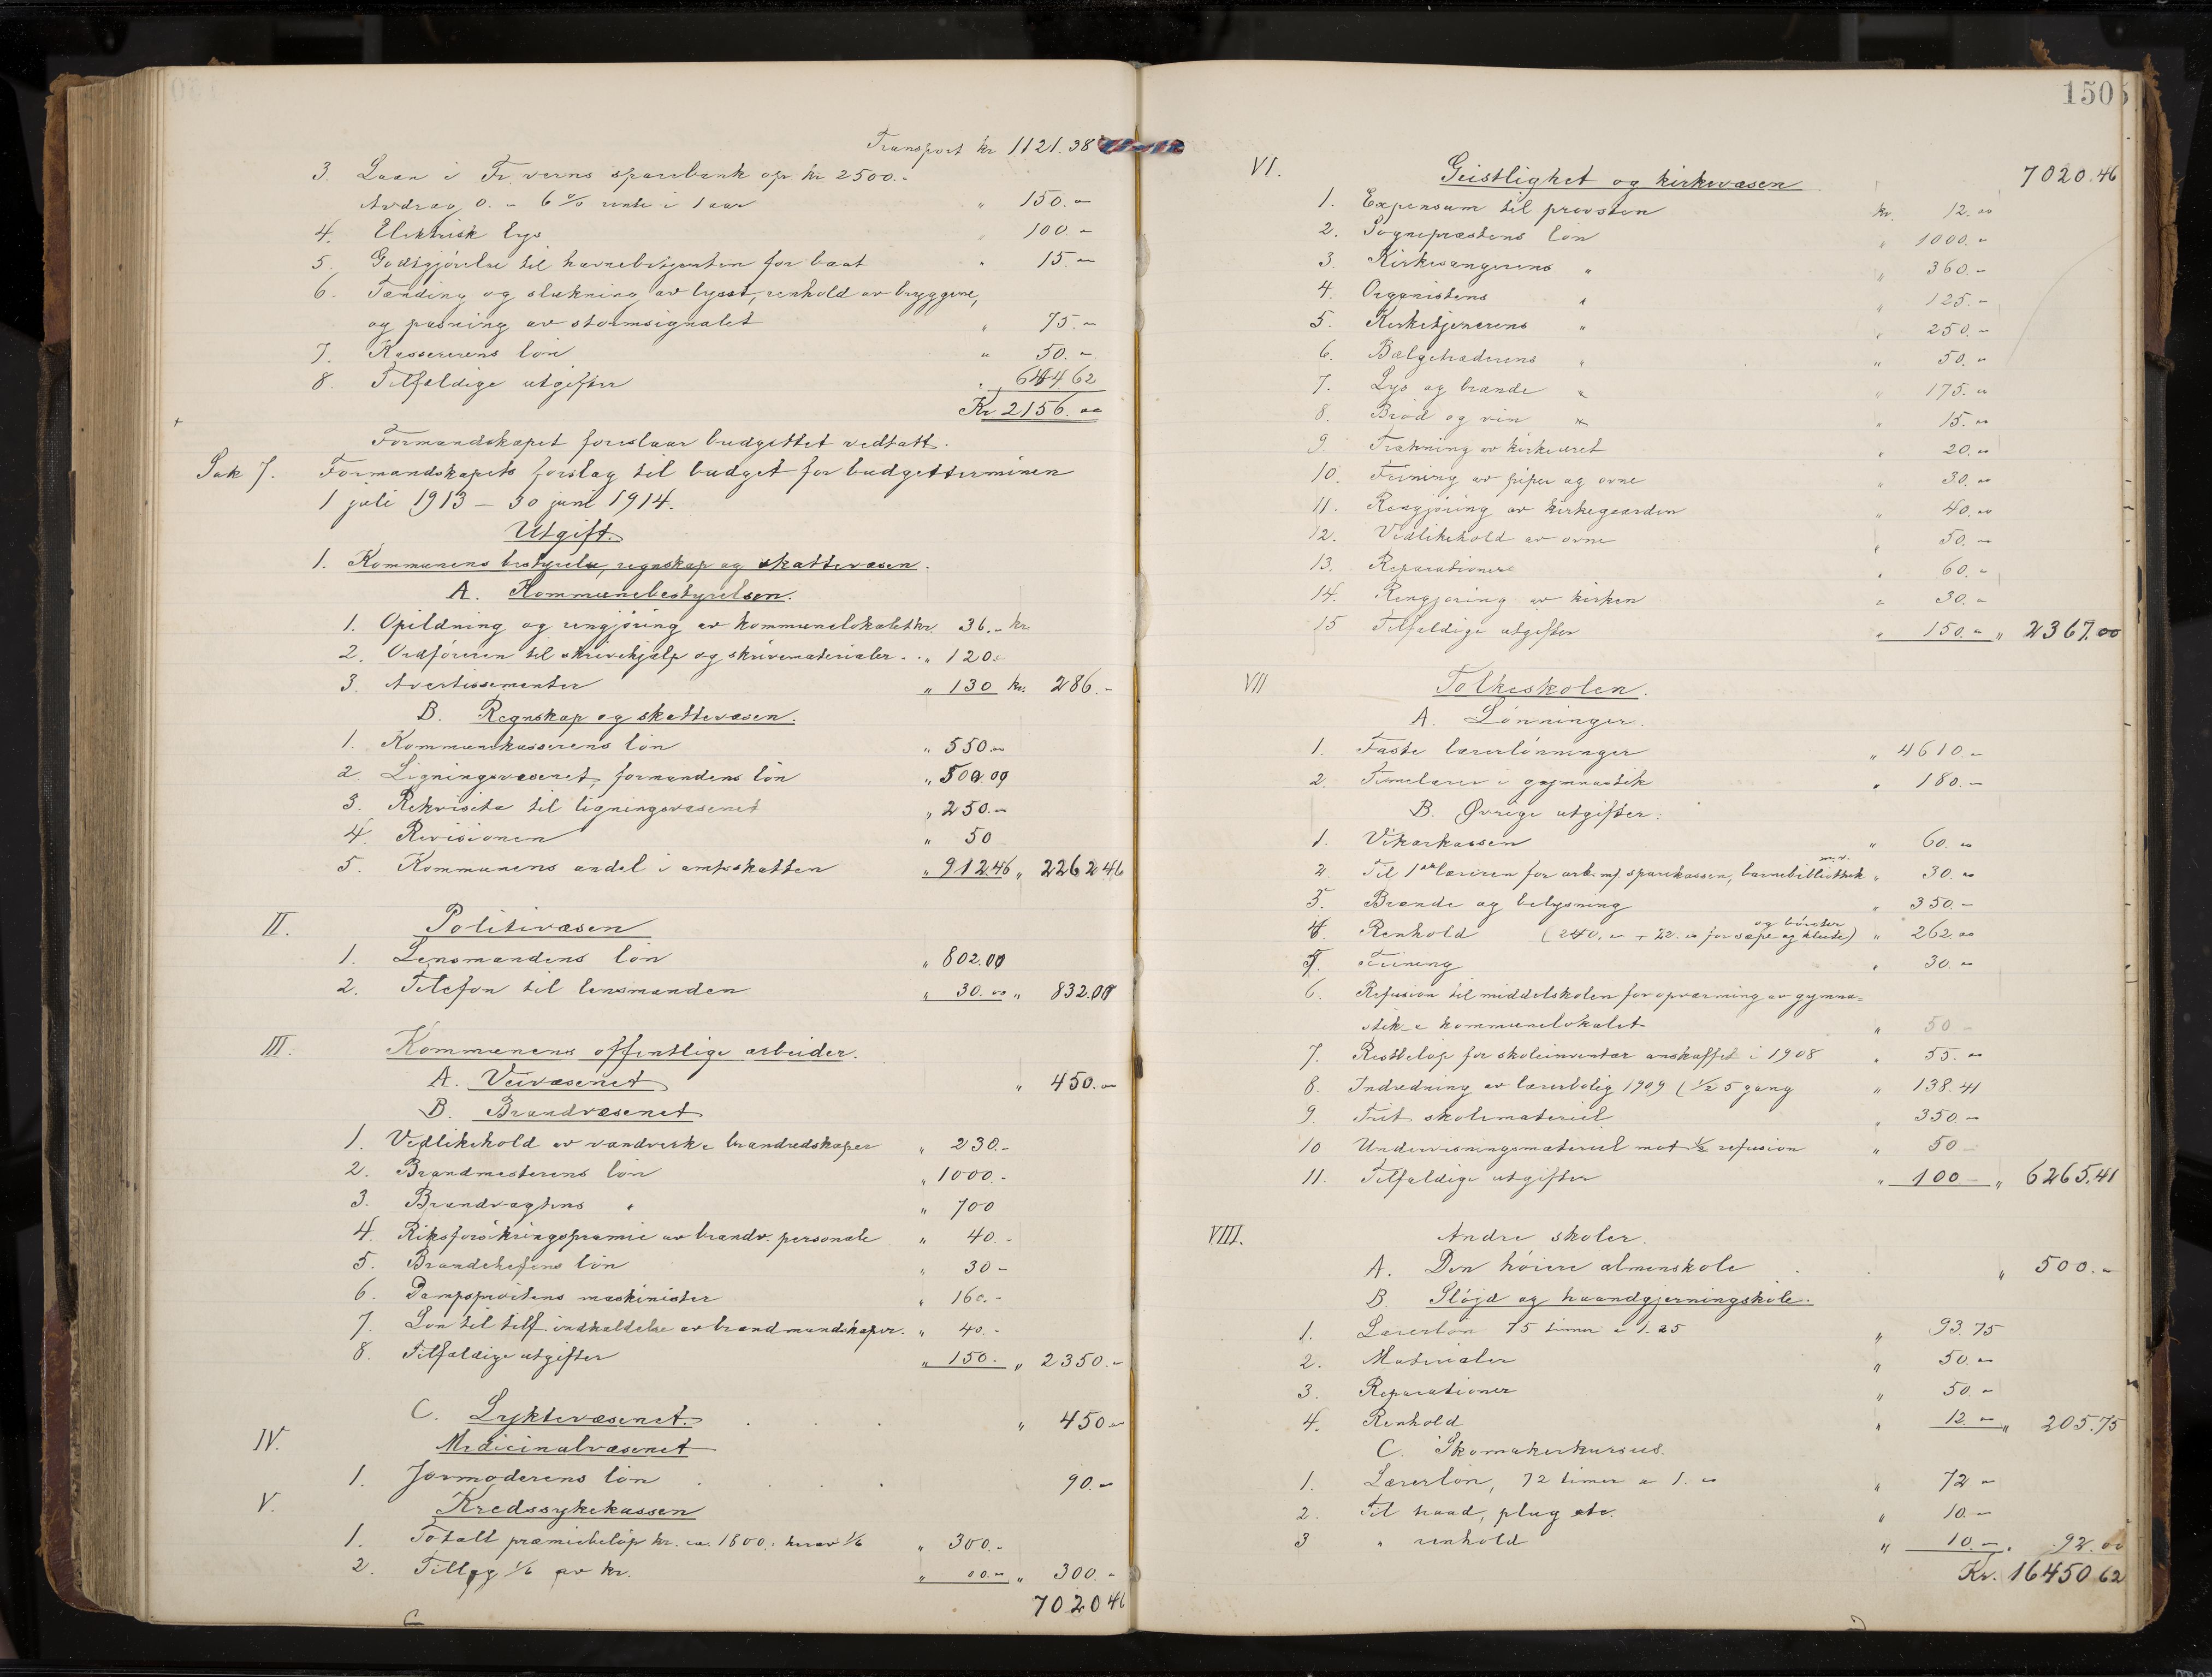 Transport kr 1121.38
3. Laan i Fr.værns sparebank opr kr 2500.-
Avdrag 0. - 6 % rente i 1 aar " 150.-
4. Elektrisk lys " 100.-
5. Godtgjörelse til havnebetjenten for baat " 15.-
6. Tænding og slukning av lyset, renhold av bryggene,
og pasning av stormsignalet " 75.-
7. Kassererens lön " 50.-
8. Tilfældige utgifter " 644.62
Kr 2156.00
Formandskapet foreslaar budgettet vedtatt.
Sak 7. Formandskapets forslag til budget for budgetterminen
1 juli 1913 - 30 juni 1914.
Utgift.
1. Kommunens bestyrelse, regnskap og skattevæsen.
A. Kommunebestyrelsen.
1. Opildning og rengjøring av kommunelokalet kr. 36.- kr.
2. Ordföreren til skrivehjælp og skrivematerialer. " 120.
3. Avertissementer " 130 kr. 286.-
B. Regnskap og skattevæsen.
1. Kommunekassererens lön " 550.-
2. Ligningsvæsenet, formandens lön " 500.00
3. Rekvisita til ligningsvæsenet " 250.-
4. Revisionen " 50
5. Kommunens andel i amtsskatten " 912.46 " 2262.46
II. Politivæsen
1. Lensmandens lön " 802.00
2. Telefon til lensmanden " 30.00 " 832.00
III. Kommunens offentlige arbeider.
A. Veivæsenet " 450.-
B. Brandvæsenet
1. Vedlikehold av vandverk & brandredskaper " 230.-
2. Brandmesterens lön " 1000.-
3. Brandvagtens " " 700
4. Riksforsikringspræmie av brandv. personale " 40.-
5. Brandchefens lön " 30 -
6. Dampspröitens maskinister " 160.-
7. Lön til tilf. indkaldelse av brandmandskaper. " 40.-
8. Tilfældige utgifter " 150.- " 2350.-
C. Lyktevæsenet. " 450.-
IV. Medicinalvæsenet
1. Jormoderens lön 90.-
V. Kredssykekassen
1. Totalt præmiebelöp kr. ca. 1800.- herav 1/6 " 300.-
2. Tillæg 1/6 av kr. " 00.- " 300.-
7020 46
150
VI. Geistlighet og kirkevæsen 7020.46
1. Expensum til provsten kr. 12.00
2. Sogneprestens lön " 1000.-
3. Kirkesangerens " " 360.-
4. Organistens " " 125.-
5. Kirketjenerens " " 250.-
6. Bælgetræderens " " 50.-
7. Lys og brænde " " 175.-
8. Bröd og vin " 15.-
9. Trækning av kirkeuret " 20.-
10. Feining av piper og ovne " 30.-
11. Rengjöring av kirkegaarden " 40.-
12. Vedlikehold av ovne " 50.-
13. Reparationer " 60.-
14. Rengjöring av kirken " 30.-
15 Tilfældige utgifter " 150.- " 2367.00
VII Folkeskolen.
A. Lönninger.
1. Faste lærerlönninger " 4610.-
2. Timelærer i gymnastik " 180.-
B. Øvrige utgifter.
1. Vikarkassen " 60.-
2. Til 1ste læreren for arb. m/. sparekassen, barnebibliothek m.v. " 30.-
3. Brænde og belysning " 350.-
4. Renhold (240.- + 22.- for sæpe og klute) og börster " 262.00
5. Feining " 30.-
6. Refusion til middelskolen for opvarming av gymna=
stik & kommunelokalet " 50 -
7. Restbelöp for skoleinventar anskaffet i 1908 " 55.-
8. Indredning av lærerbolig 1909 (1/2 5 gang " 138.41
9. Frit skolemateriel " 350.-
10 Undervisningsmateriel mot 1/2 refusion " 50 -
11. Tilfældige utgifter " 100 - " 6265.41
VIII. Andre skoler.
A. Den høiere almenskole " 500.-
B. Slöjd og haandgjerningskole.
1. Lærerlön 75 timer à 1.25 " 93.75
2. Materialer " 50.-
3. Reparationer " 50.-
4. Renhold " 12.- " 205.75
C. Skomakerkursus.
1. Lærerlön, 72 timer à 1.- " 72 -
2. Til traad, plug etc. " 10.-
3 " renhold " 10.- " 92.00
Kr. 16450 62